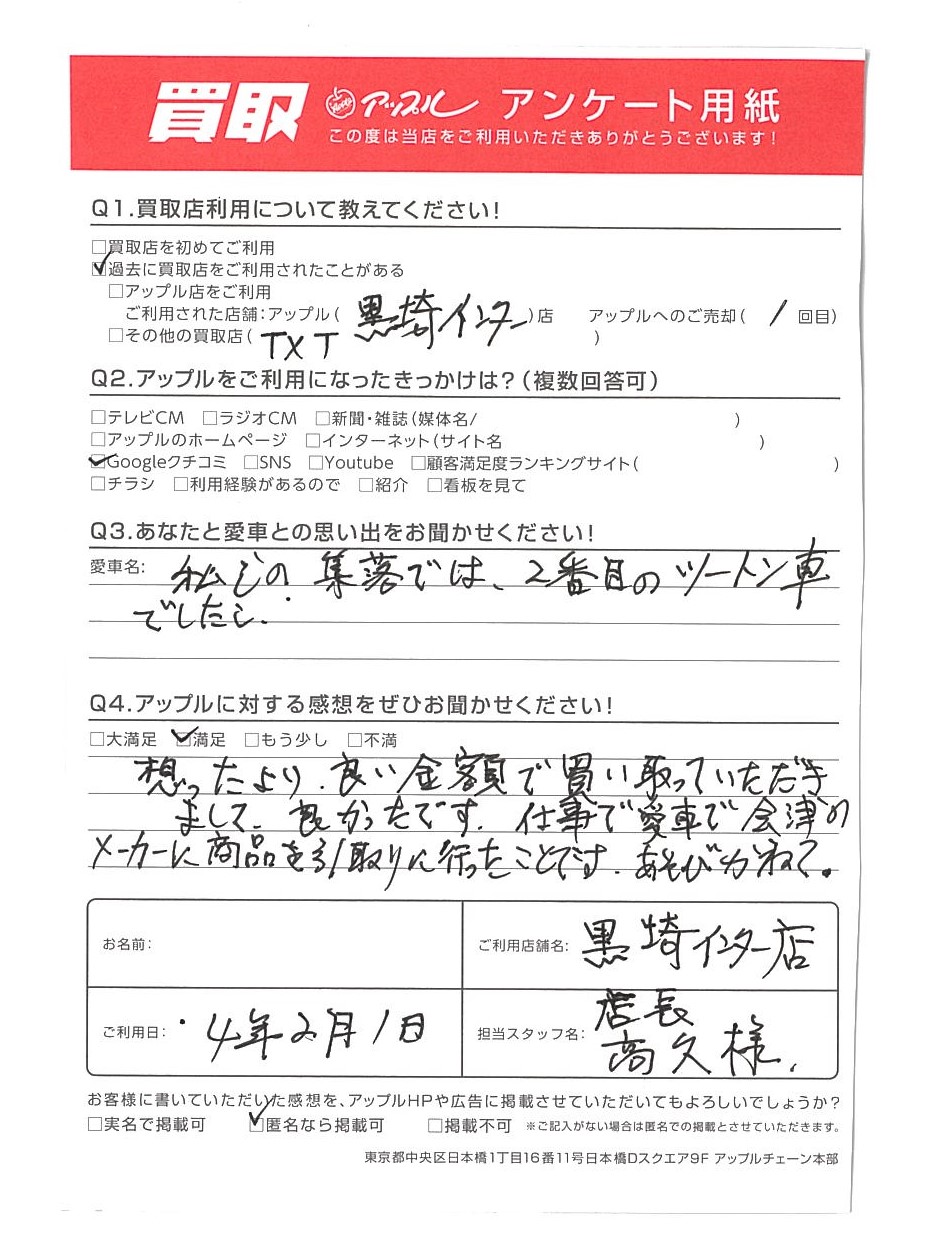 買取 アップル アンケート用紙
この度は当店をご利用いただきありがとうございます!
Q1.買取店利用について教えてください!
□買取店を初めてご利用
☑過去に買取店をご利用されたことがある
□アップル店をご利用
ご利用された店舗:アップル(黒埼インター)店 アップルへのご売却(1回目)
□その他の買取店(TXT)
Q2.アップルをご利用になったきっかけは?(複数回答可)
□テレビCM □ラジオCM □新聞・雑誌(媒体名/ )
□アップルのホームページ □インターネット(サイト名 )
☑Googleクチコミ □SNS □Youtube □顧客満足度ランキングサイト( )
□チラシ □利用経験があるので □紹介 □看板を見て
Q3.あなたと愛車との思い出をお聞かせください!
愛車名: 私しの集落では、2番目のツートン車
でしたし.
Q4.アップルに対する感想をぜひお聞かせください!
□大満足 ☑満足 □もう少し □不満
想ったより、良い金額で買い取っていただき
まして、良かったです。仕事で愛車で会津の
メーカーに商品を引取りに行ったことです。あそびがねて。
お名前:
ご利用店舗名: 黒埼インター店
ご利用日: 4年2月1日
担当スタッフ名: 店長
高久様.
お客様に書いていただいた感想を、アップルHPや広告に掲載させていただいてもよろしいでしょうか?
□実名で掲載可 ☑匿名なら掲載可 □掲載不可 ※ご記入がない場合は匿名での掲載とさせていただきます。
東京都中央区日本橋1丁目16番11号日本橋Dスクエア9F アップルチェーン本部